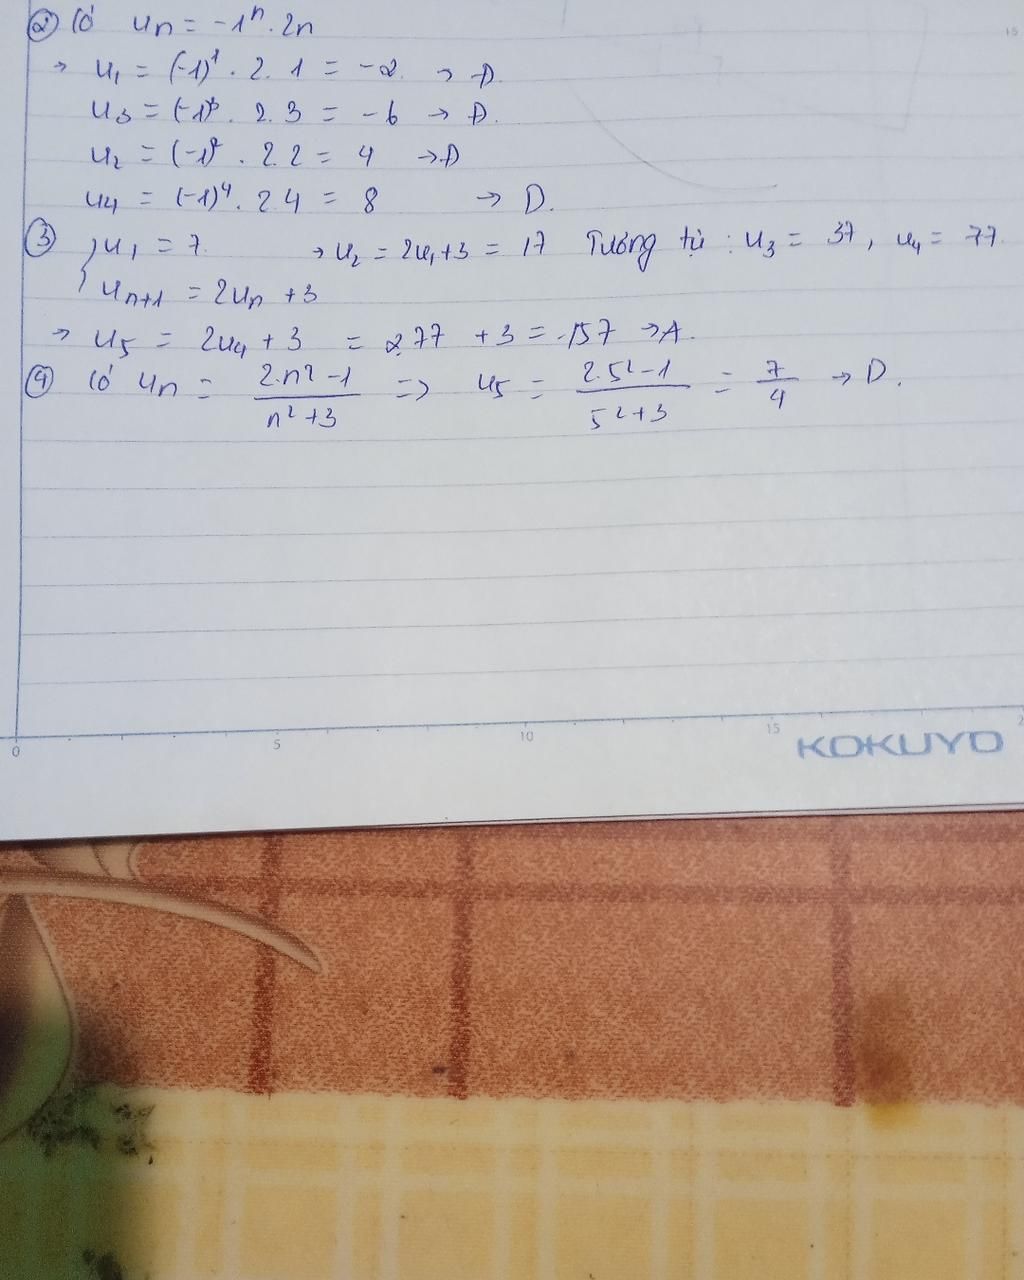 ② Có uₙ = -1ⁿ . 2n
→ u₁ = (-1)¹ . 2. 1 = -2. → D.
u₃ = (-1)³ . 2.3 = -6 → D.
u₂ = (-1)² . 2.2 = 4 → D
u₄ = (-1)⁴ . 2 4 = 8 → D.
③ { u₁ = 7. → u₂ = 2u₁+3 = 17 Tương tự : u₃ = 37, u₄ = 77.
uₙ₊₁ = 2uₙ +3
→ u₅ = 2u₄ + 3 = 2.77 + 3 = 157 → A.
④ Có uₙ = (2.n²-1)/(n²+3) => u₅ = (2.5²-1)/(5²+3) = 7/4 → D.
0 5 10 15
KOKUYO